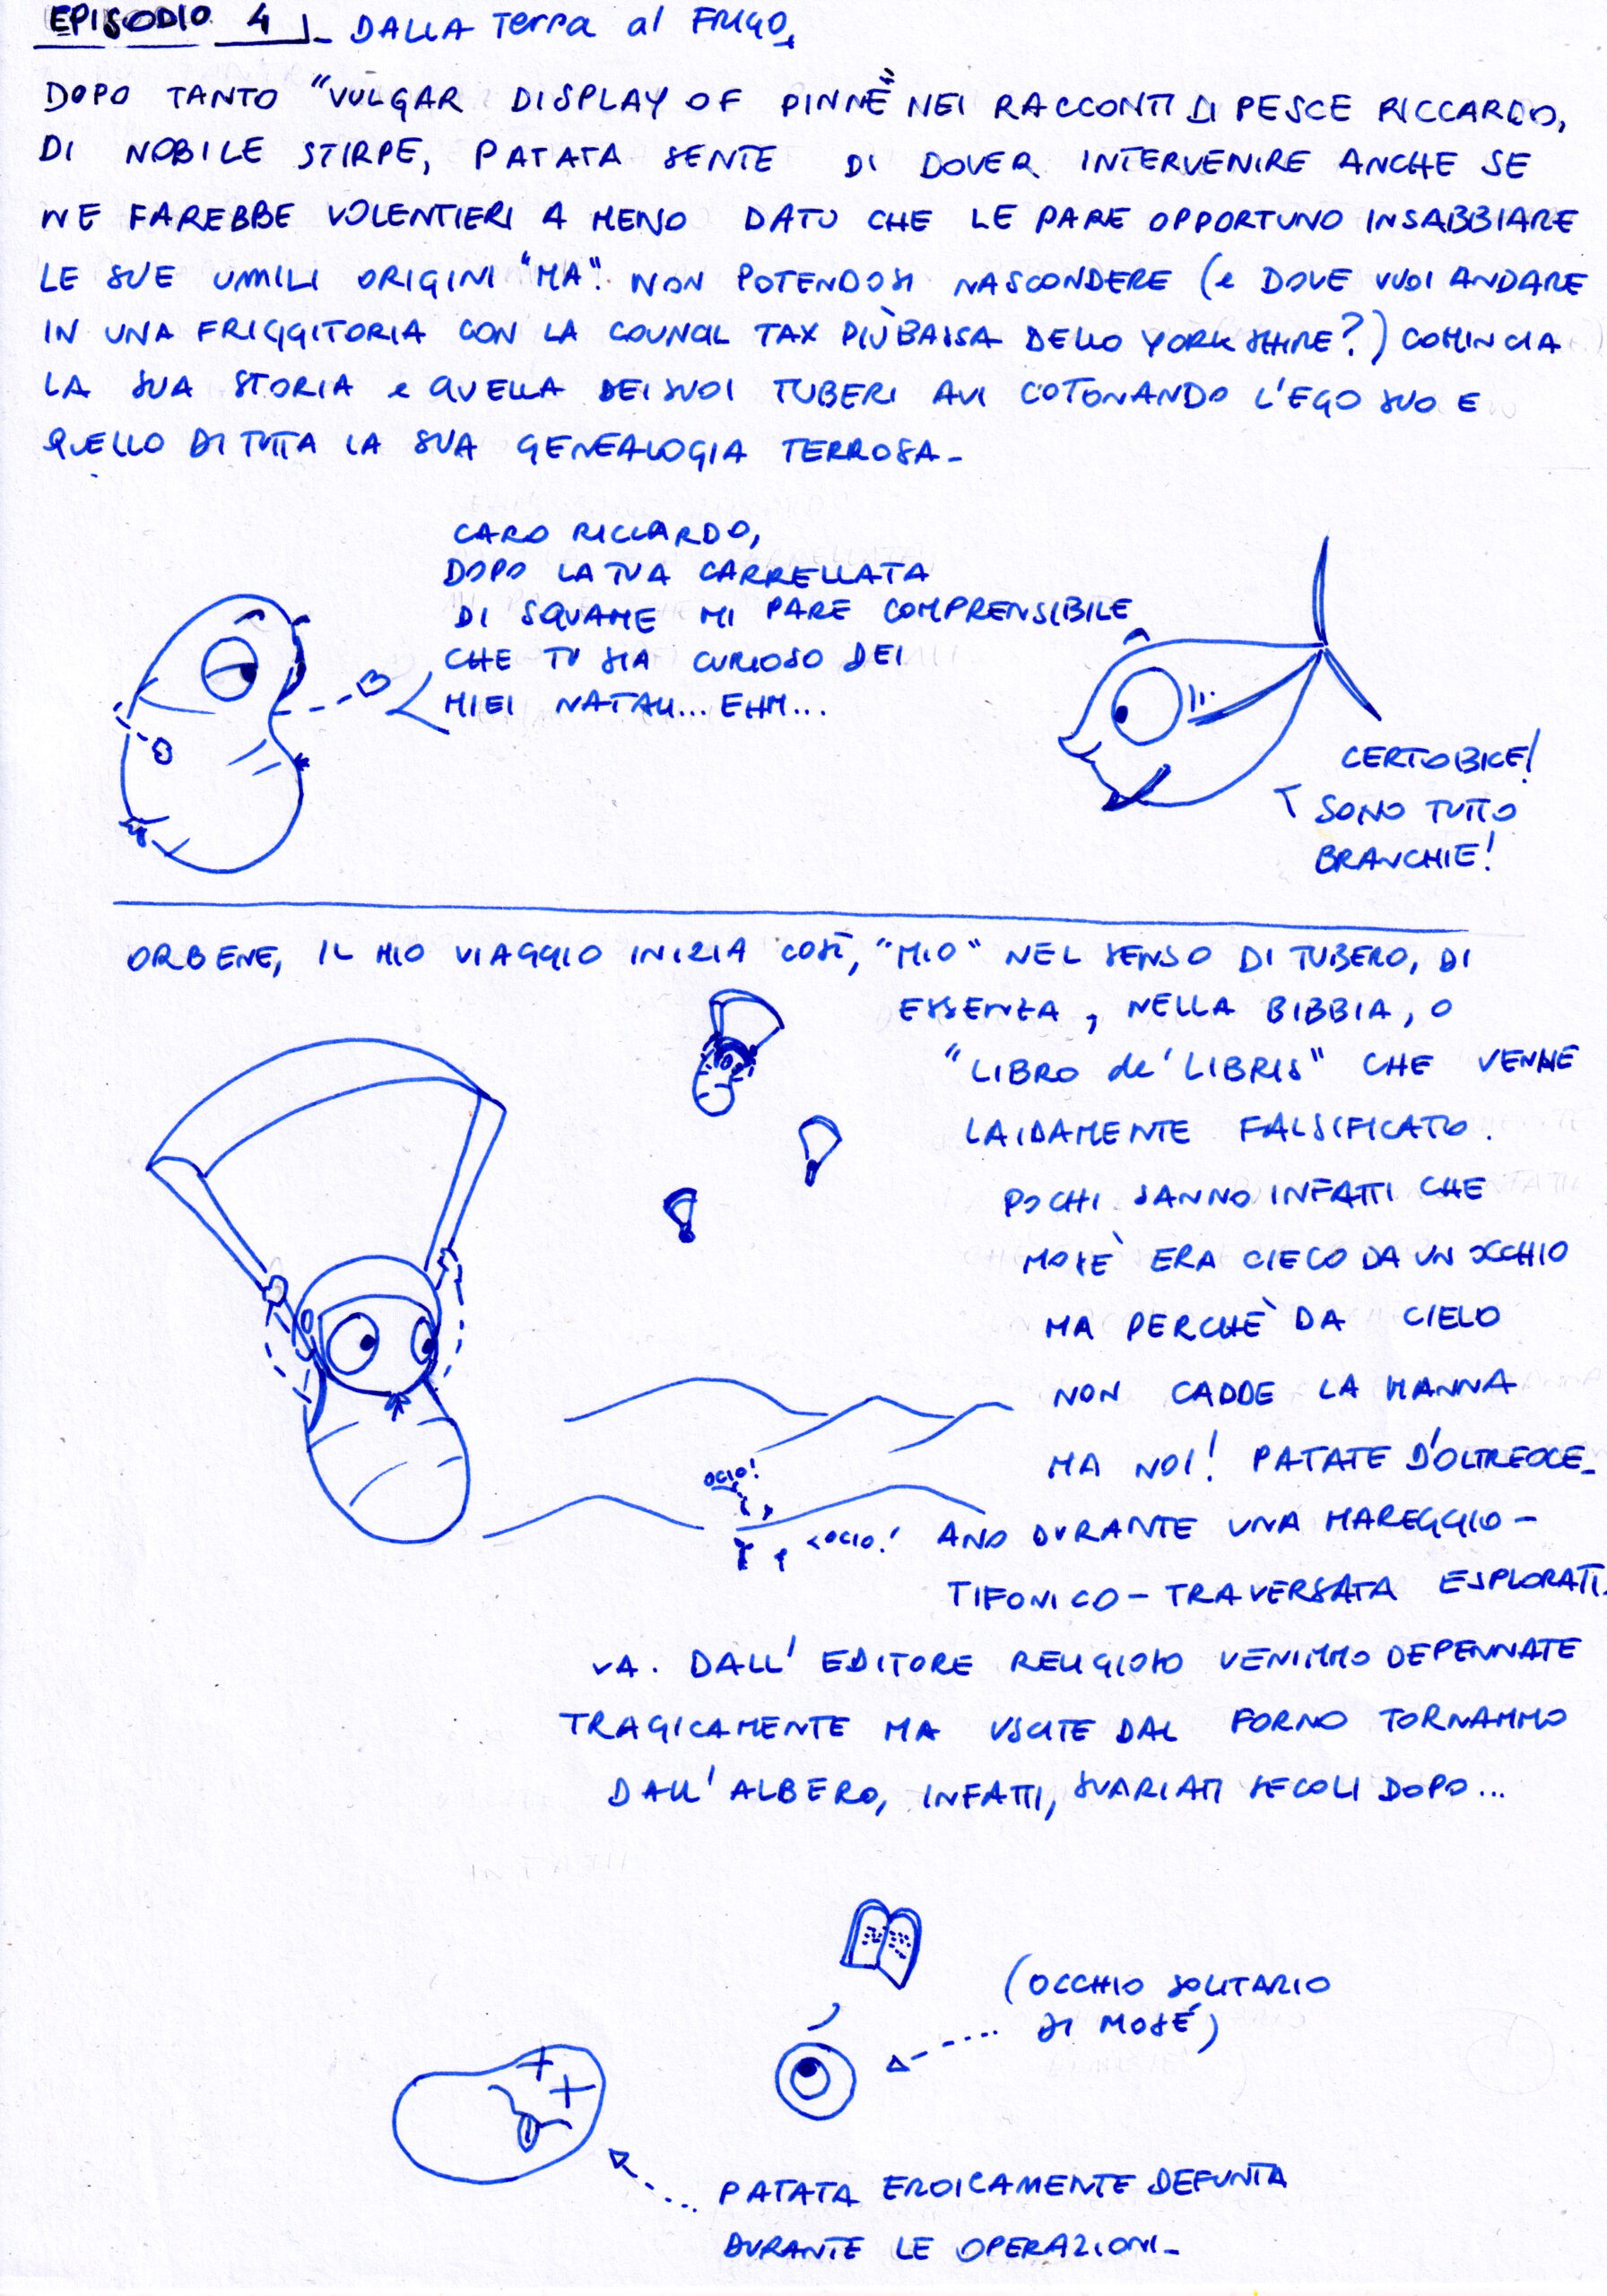 EPISODIO 4 - DALLA Terra al FRIGO.
DOPO TANTO "VULGAR DISPLAY OF PINNE" NEI RACCONTI DI PESCE RICCARDO,
DI NOBILE STIRPE, PATATA SENTE DI DOVER INTERVENIRE ANCHE SE
NE FAREBBE VOLENTIERI A MENO DATO CHE LE PARE OPPORTUNO INSABBIARE
LE SUE UMILI ORIGINI "MA". NON POTENDOSI NASCONDERE (e DOVE VUOI ANDARE
IN UNA FRIGGITORIA CON LA COUNCIL TAX PIÙ BASSA DELLO YORKSHIRE?) COMINCIA
LA SUA STORIA e QUELLA DEI SUOI TUBERI AVI COTONANDO L'EGO SUO E
QUELLO DI TUTTA LA SUA GENEALOGIA TERROSA_
CARO RICCARDO,
DOPO LA TUA CARRELLATA
DI SQUAME MI PARE COMPRENSIBILE
CHE TU SIA CURIOSO DEI
MIEI NATALI... EHM...
CERTO BICE!
SONO TUTTO
BRANCHIE!
ORBENE, IL MIO VIAGGIO INIZIA COSÌ, "MIO" NEL SENSO DI TUBERO, DI
ESSENZA, NELLA BIBBIA, O
"LIBRO de' LIBRIS" CHE VENNE
LAIDAMENTE FALSIFICATO.
POCHI SANNO INFATTI CHE
MOSÈ ERA CIECO DA UN OCCHIO
MA PERCHÈ DA CIELO
NON CADDE LA MANNA
MA NOI! PATATE D'OLTREOCE_
OCIO!
OCIO!
ANO DURANTE UNA MAREGGIO-
TIFONICO-TRAVERSATA ESPLORATI_
VA. DALL'EDITORE RELIGIOSO VENIMMO DEPENNATE
TRAGICAMENTE MA USCITE DAL FORNO TORNAMMO
DALL'ALBERO, INFATTI, SVARIATI SECOLI DOPO...
(OCCHIO SOLITARIO
DI MOSÉ)
PATATA EROICAMENTE DEFUNTA
DURANTE LE OPERAZIONI_